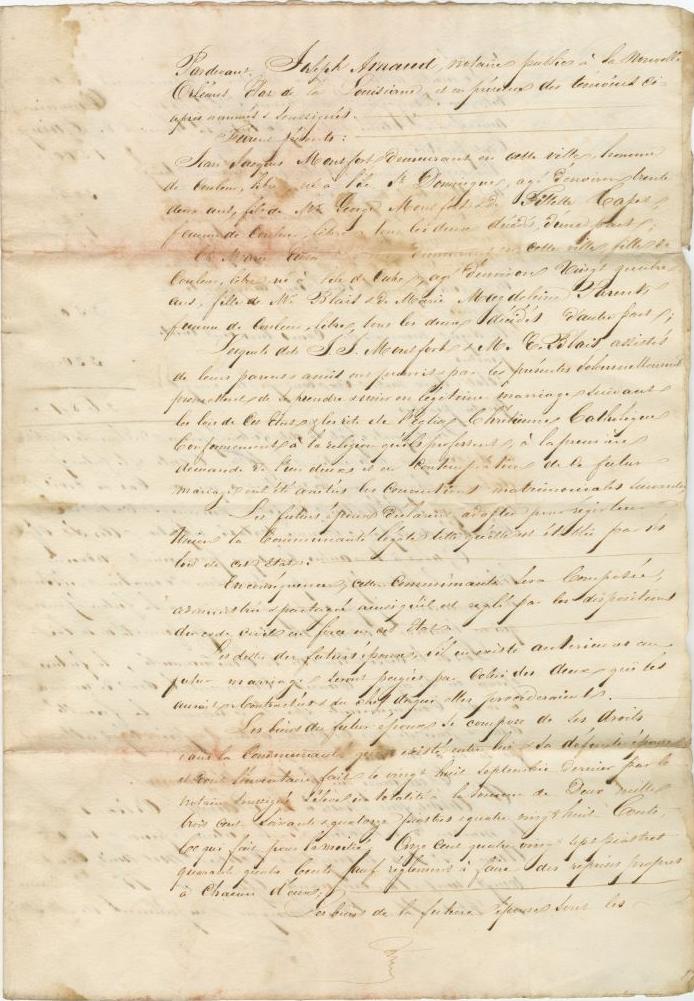 Pardevant Joseph Arnaud, notaire public à la Nouvelle
Orléans, Etat de la Louisiane, et en présence des témoins ci-
après nommés & soussignés.
Furent présents:
Jean Jacques Montfort demeurant en cette ville, homme
de couleur, libre, né à l'île St Domingue, agé d'environ trente
deux ans, fils de Mr George Montfort & de
femme de couleur, libre, tous les deux décédés, d'une part;
Et Marie demeurant en cette ville, fille de
couleur, libre, né à l'île de Cuba, agé d'environ Vingt quatre
ans, fille de Mr Blait & de Marie Magdeleine Parents
femme de couleur, libre, tous les deux décédés d'autre part;
Lesquels dits J. J. Montfort & M. E. Blait assistés
de leurs parens & amis ont promis par ces présentes solennellement
promettent de se prendre & unir en légitime mariage suivant
les lois de cet Etat & les rits de l'église Chrétienne Catholique
Conformément à la religion qu'ils professent, à la première
demande de l'un d'eux et en contemplation de ce futur
mariage ont été arrêtés les conventions matrimoniales suivantes
Les futurs époux déclarent adopter pour régir leur
Union la Communauté légale telle qu'elle est établie par les
lois de cet Etat.
En conséquence, cette Communauté sera Composée,
administrée & partagée ainsi qu'il est réglé par les dispositions
du code civil en force en cet Etat.
Les dettes des futurs époux s'il en existe antérieures au
futur mariage seront payées par celui des deux qui les
aurait contractés & du chef duquel elles procéderaient.
Les biens du futur époux se compose de ses droits
dans la Communauté qui a existé entre lui & sa défunte épouse
et dont l'inventaire fait le vingt huit Septembre dernier par le
notaire soussigné s'élève en totalité à la somme de Deux mille
trois cent soixante & quatorze piastres quatre vingt huit Cents
ce qui fait pour la moitié Onze cent quatre vingt sept piastres
quarante quatre Cents sauf règlement à faire des reprises propres
à chacun d'eux;
Les biens de la future épouse sont les